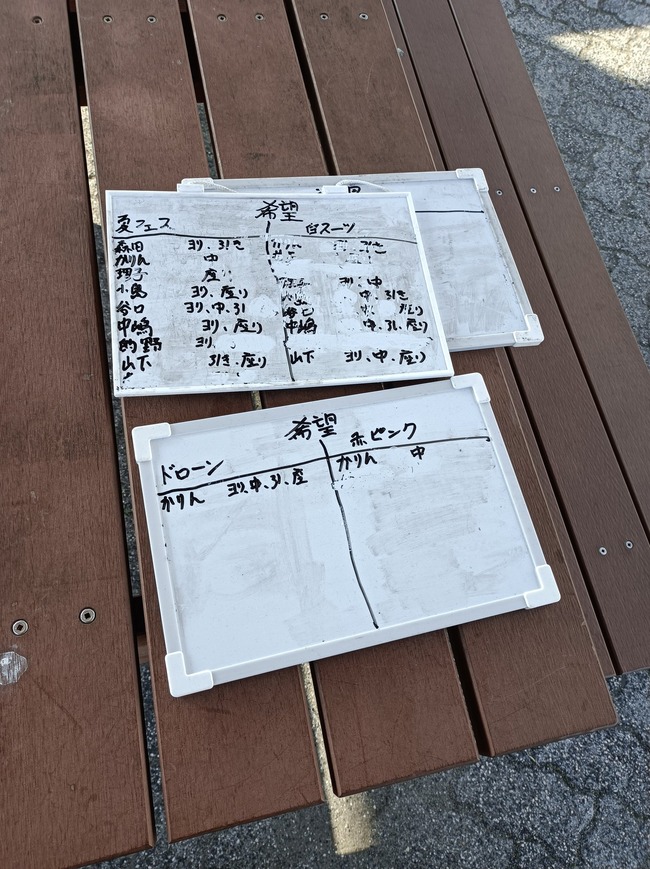 希望
夏フェス 白スーツ
森田 ヨリ、引き
かりん 中
理子 座り
小島 ヨリ、座り 中、引き
谷口 ヨリ、中、引 座り
中嶋 ヨリ、座り 中嶋 中、引、座り
的野 ヨリ、
山下 引き、座り 山下 ヨリ、中、座り
希望
ドローン 赤ピンク
かりん ヨリ、中、引、座 かりん 中